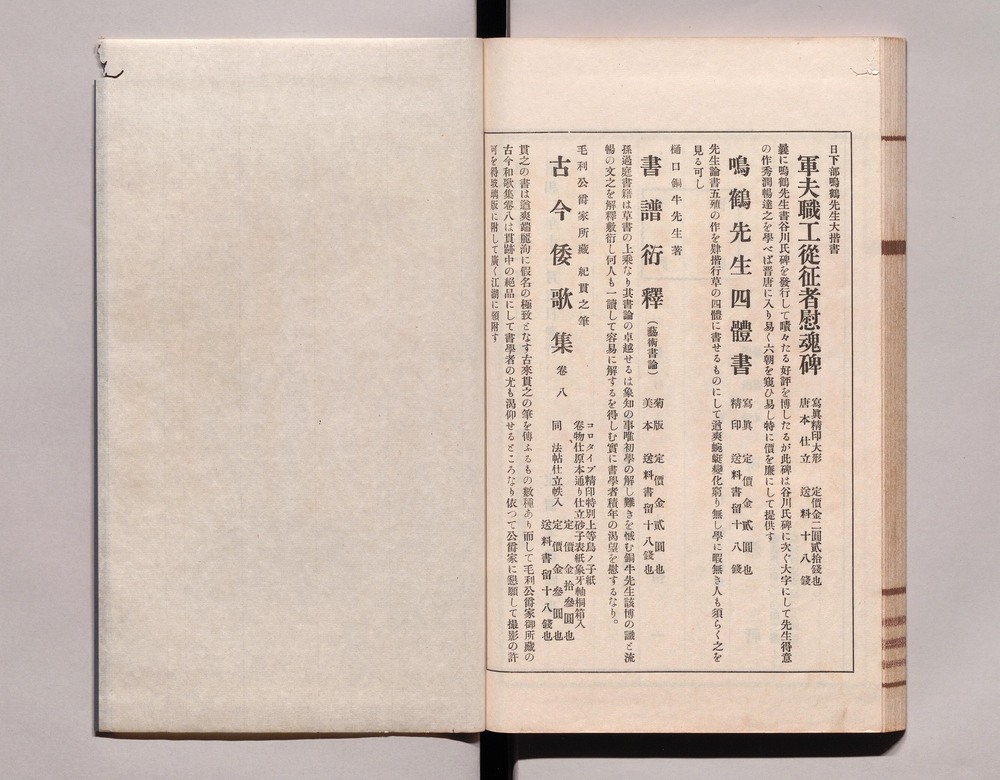 日下部鳴鶴先生大揩書
軍夫職工從征者慰魂碑
寫眞精印大形 定價金二圓貳拾錢也
唐本仕立 送料十八錢
曩に鳴鶴先生書谷川氏碑を發行して嘖々たる好評を博したるが此碑は谷川氏碑に次ぐ大字にして先生得意
の作秀潤暢達之を學べば晋唐に入り易く六朝を窺ひ易し特に價を廉にして提供す
鳴鶴先生四體書
寫眞 定價金貳圓也
精印 送料書留十八錢
先生論書五殖の作を肄揩行草の四體に書せるものにして遒爽蜿蜒變化窮り無し學に暇無き人も須らく之を
見る可し
樋口銅牛先生著
書譜衍釋(藝術書論)
菊版 定價金貳圓也
美本 送料書留十八錢也
孫過庭書譜は草書の上乘なり其書論の卓越せるは象知の事唯初學の解し難きを憾む銅牛先生該博の識と流
暢の文之を解釋敷衍し何人も一讀して容易に解するを得しむ實に書學者積年の渴望を慰するなり。
毛利公爵家所藏 紀貫之筆
古今倭歌集 卷八
コロタイプ精印特別上等鳥ノ子紙
卷物仕原本通り仕立砂子表紙象牙軸桐箱入
定價金拾參圓也
同 法帖仕立帙入 定價金參圓也
送料書留十八錢也
貫之の書は遒爽端麗洵に假名の極致となす古來貫之の筆を傳ふるもの數種あり而して毛利公爵家御所藏の
古今和歌集卷八は貫跡中の絕品にして書學者の尤も渴仰せるところなり依つて公爵家に懇願して撮影の許
可を得玻璃版に附して廣く江湖に頒附す